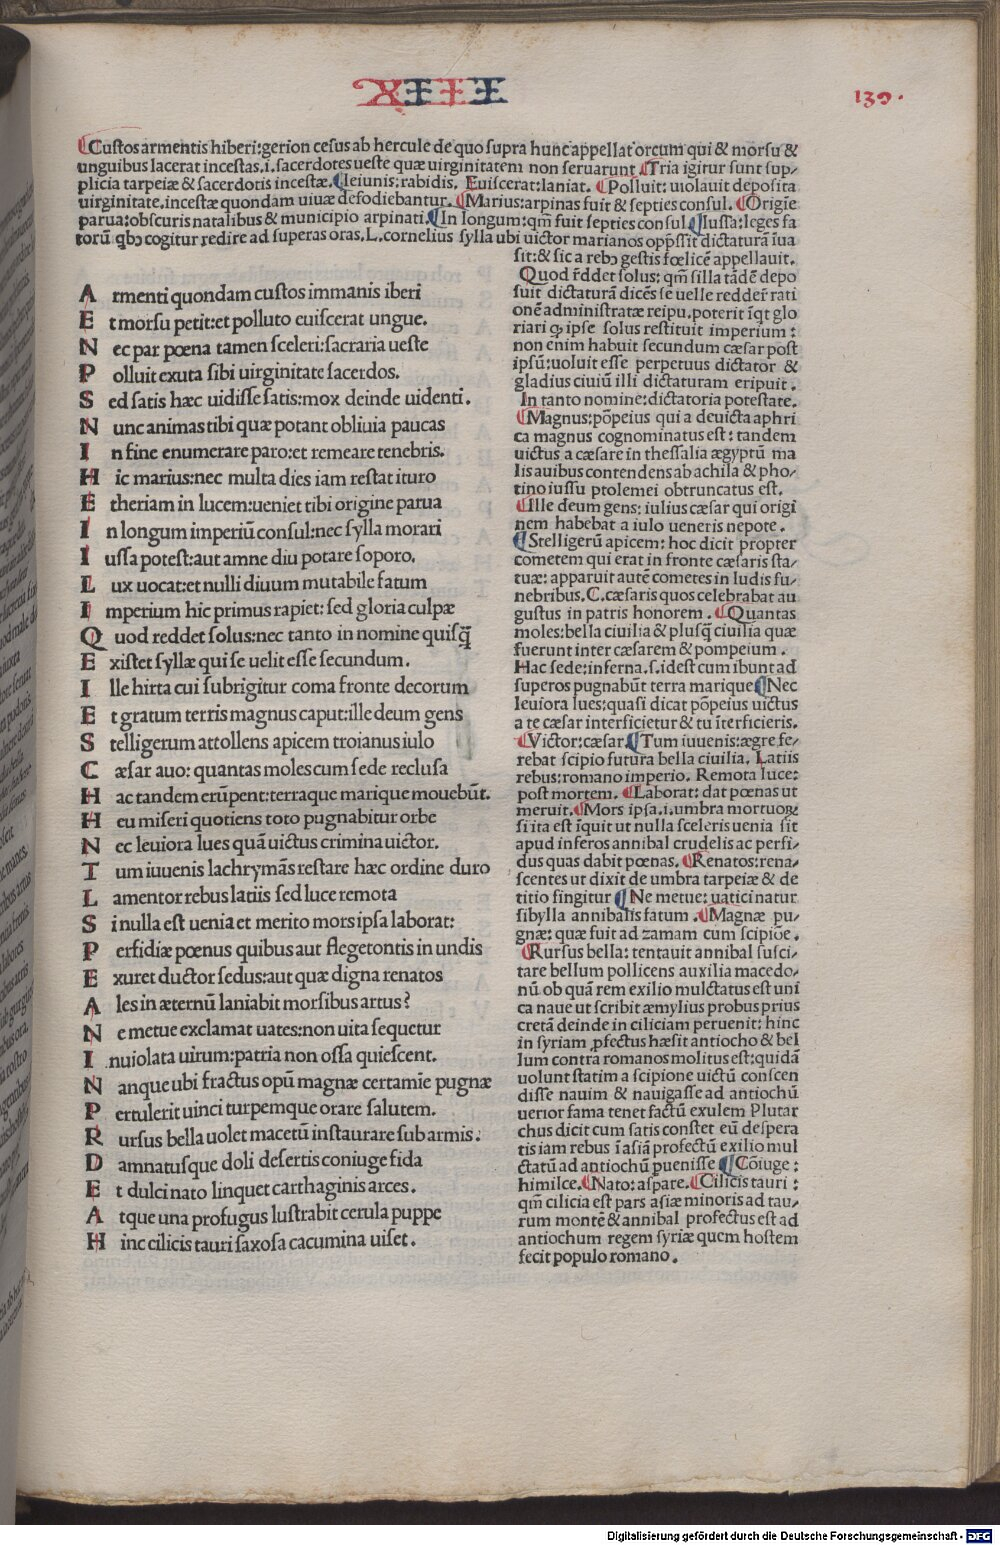 XIII
139.
Custos armentis hiberi: gerion cesus ab hercule de quo supra hunc appellat orcum qui & morsu &
unguibus lacerat incestas.i.sacerdotes ueste quæ uirginitatem non seruarunt Tria igitur sunt sup/
plicia tarpeiæ & sacerdotis incestæ. Ieiunis: rabidis. Euiscerat: laniat. Polluit: uiolauit deposita
uirginitate.incestæ quondam uiuæ defodiebantur. Marius: arpinas fuit & septies consul. Origīe
parua: obscuris natalibus & municipio arpinati. In longum: qm̄ fuit septies consul. Iussa: leges fa
torū qbꝫ cogitur redire ad superas oras. L.cornelius sylla ubi uictor marianos opp̄ssit dictaturā īua
A rmenti quondam custos immanis iberi
E t morsu petit: et polluto euiscerat ungue.
N ec par pœna tamen sceleri: sacraria ueste
P olluit exuta sibi uirginitate sacerdos.
S ed satis hæc uidisse satis: mox deinde uidenti.
N unc animas tibi quæ potant obliuia paucas
I n fine enumerare paro: et remeare tenebris.
H ic marius: nec multa dies iam restat ituro
E theriam in lucem: ueniet tibi origine parua
I n longum imperiū consul: nec sylla morari
I ussa potest: aut amne diu potare soporo.
L ux uocat: et nulli diuum mutabile fatum
I mperium hic primus rapiet: sed gloria culpæ
Q uod reddet solus: nec tanto in nomine quisq̄
E xistet syllæ qui se uelit esse secundum.
I lle hirta cui subrigitur coma fronte decorum
E t gratum terris magnus caput: ille deum gens
S telligerum attollens apicem troianus iulo
C æsar auo: quantas moles cum sede reclusa
H ac tandem erūpent: terraque marique mouebūt.
H eu miseri quotiens toto pugnabitur orbe
N ec leuiora lues quā uictus crimina uictor.
T um iuuenis lachrymās restare hæc ordine duro
L amentor rebus latiis sed luce remota
S i nulla est uenia et merito mors ipsa laborat:
P erfidiæ pœnus quibus aut flegetontis in undis
E xuret ductor sedus: aut quæ digna renatos
A les in æternū laniabit morsibus artus?
N e metue exclamat uates: non uita sequetur
I nuiolata uirum: patria non ossa quiescent.
N anque ubi fractus opū magnæ certamīe pugnæ
P ertulerit uinci turpemque orare salutem.
R ursus bella uolet macetū instaurare sub armis:
D amnatusque doli desertis coniuge fida
E t dulci nato linquet carthaginis arces.
A tque una profugus lustrabit cerula puppe
H inc cilicis tauri saxosa cacumina uiset.
sit: & sic a rebꝫ gestis fœlicē appellauit.
Quod r̄ddet solus: qm̄ silla tādē depo
suit dictaturā dicēs se uelle redder̄ rati
onē administratæ reipu. poterit īqt glo
riari ꝙ ipse solus restituit imperium:
non enim habuit secundum cæsar post
ipsū: uoluit esse perpetuus dictator &
gladius ciuiū illi dictaturam eripuit.
In tanto nomine: dictatoria potestate.
Magnus: pōpeius qui a deuicta aphri
ca magnus cognominatus est: tandem
uictus a cæsare in thessalia ægyptū ma
lis auibus contendens ab achila & pho/
tino iussu ptolemei obtruncatus est.
Ille deum gens: iulius cæsar qui origi
nem habebat a iulo ueneris nepote.
Stelligerū apicem: hoc dicit propter
cometem qui erat in fronte cæsaris sta/
tuæ: apparuit autē cometes in ludis fu/
nebribus. C.cæsaris quos celebrabat au
gustus in patris honorem. Quantas
moles: bella ciuilia & plusq̄ ciuilia quæ
fuerunt inter cæsarem & pompeium.
Hac sede: inferna.s.idest cum ibunt ad
superos pugnabūt terra marique Nec
leuiora lues: quasi dicat pōpeius uictus
a te cæsar interficietur & tu īterficieris.
Victor: cæsar. Tum iuuenis: ægre fe/
rebat scipio futura bella ciuilia. Latiis
rebus: romano imperio. Remota luce:
post mortem. Laborat: dat pœnas ut
meruit. Mors ipsa.i.umbra mortuoꝝ
si ita est īquit ut nulla sceleris uenia sit
apud inferos annibal crudelis ac perfi/
dus quas dabit pœnas. Renatos: rena/
scentes ut dixit de umbra tarpeiæ & de
titio fingitur Ne metue: uaticinatur
sibylla annibalis fatum. Magnæ pu/
gnæ: quæ fuit ad zamam cum scipiōe.
Rursus bella: tentauit annibal susci/
tare bellum pollicens auxilia macedo/
nū ob quā rem exilio mulctatus est uni
ca naue ut scribit æmylius probus prius
cretā deinde in ciliciam peruenit: hinc
in syriam ꝓfectus hæsit antiocho & bel
lum contra romanos molitus est: quidā
uolunt statim a scipione uictū conscen
disse nauim & nauigasse ad antiochū
uerior fama tenet factū exulem Plutar
chus dicit cum satis constet eū despera
tis iam rebus ī asiā profectū exilio mul
ctatū ad antiochū puenisse Cōiuge:
himilce. Nato: aspare. Cilicis tauri:
qm̄ cilicia est pars asiæ minoris ad tau/
rum montē & annibal profectus est ad
antiochum regem syriæ quem hostem
fecit populo romano.
Digitalisierung gefördert durch die Deutsche Forschungsgemeinschaft - DFG